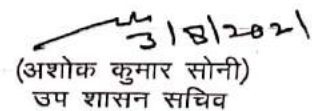 3/8/2021
(अशोक कुमार सोनी)
उप शासन सचिव